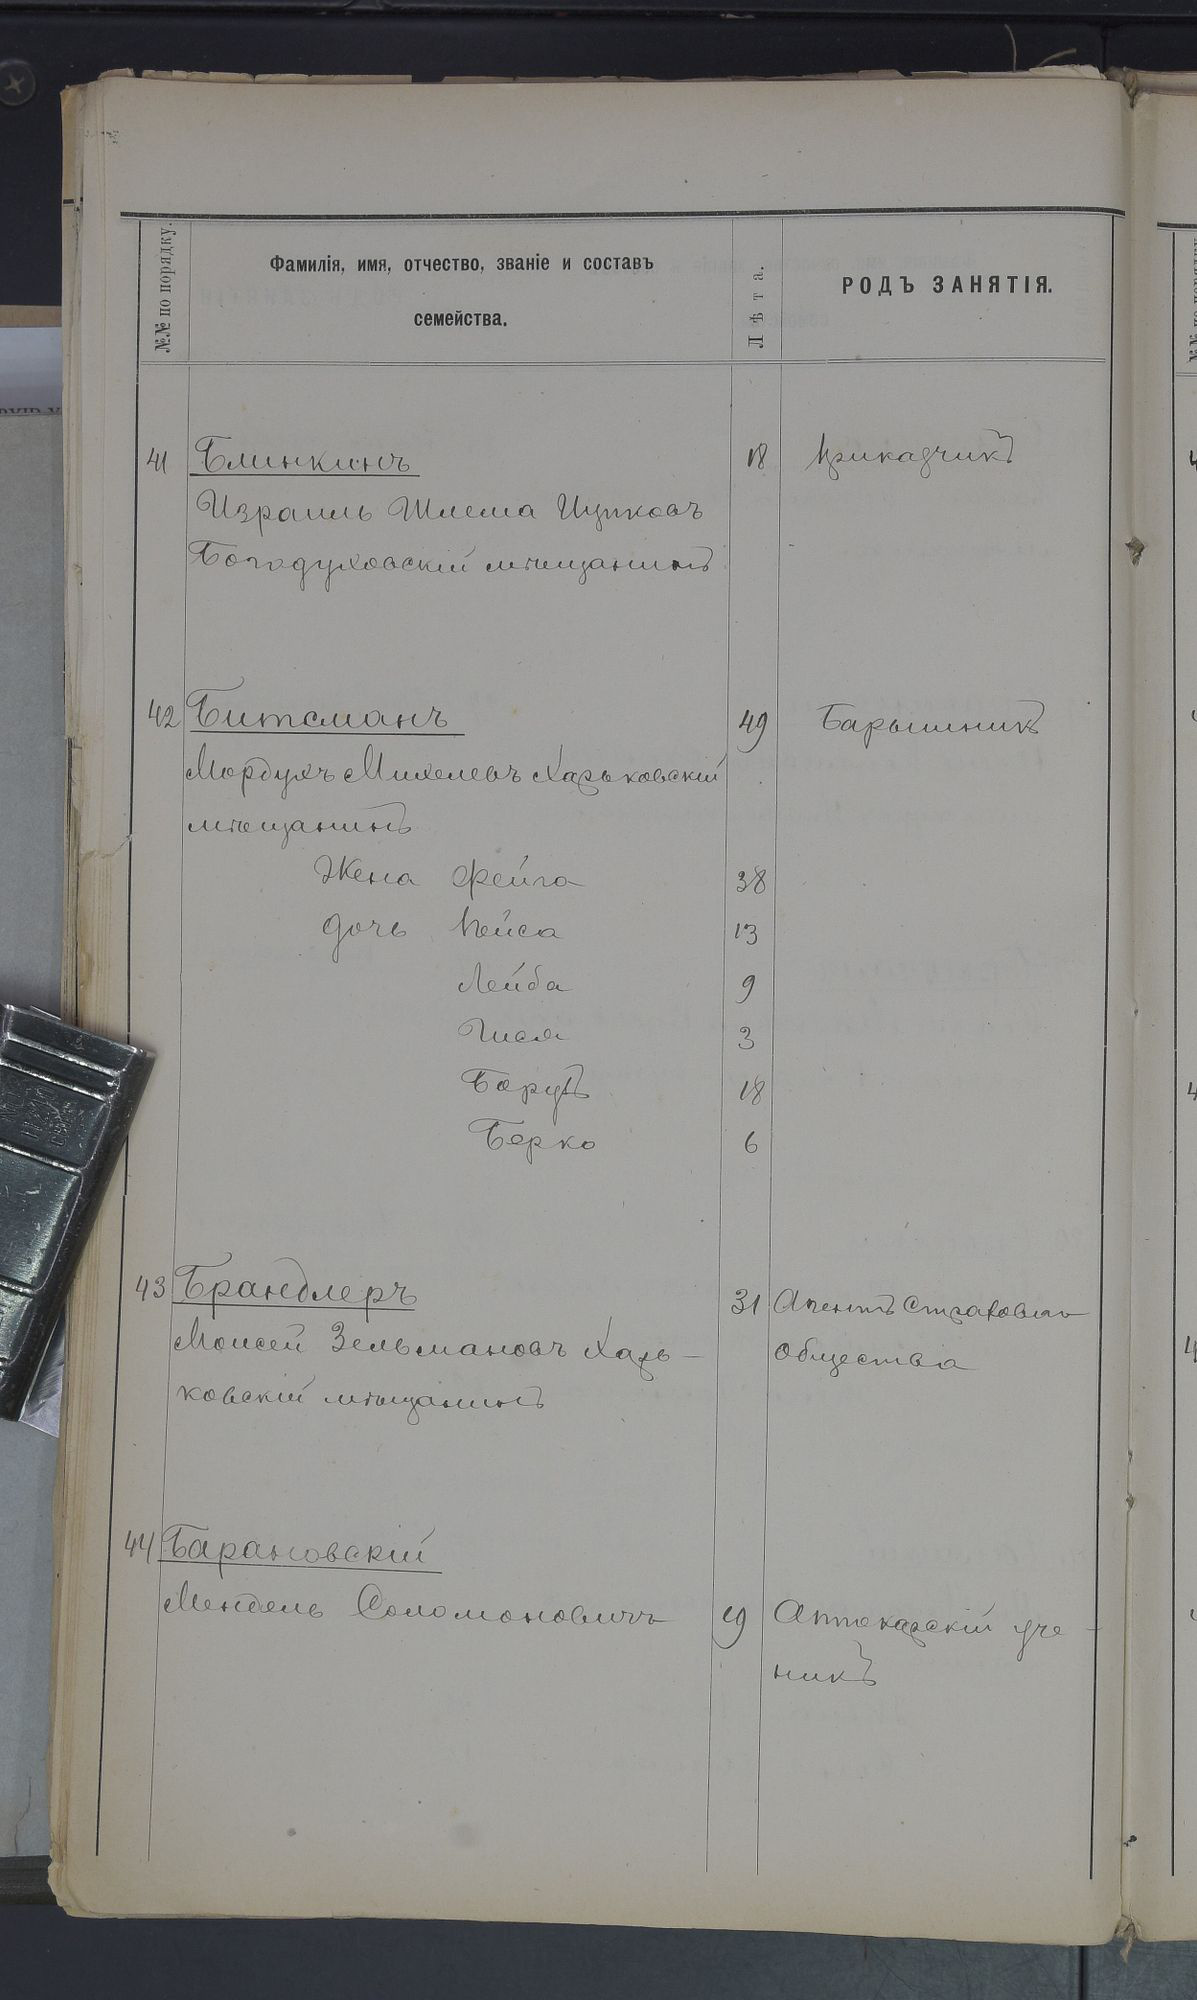 №№ по порядку.
Фамилія, имя, отчество, званіе и составъ
семейства.
Лѣта.
РОДЪ ЗАНЯТІЯ.
41 Блинкинъ 18 Приказчикъ
Израиль Шлема Ицковъ
Богодуховскій мѣщанинъ
42 Битсманъ 49 Барышникъ
Мордухъ Михелевъ Харьковскій
мѣщанинъ
Жена Фейга 38
дочь Пейса 13
Лейба 9
Гися 3
Борухъ 18
Берко 6
43 Брандлеръ 31 Агентъ Страховаго
Моисей Зельмановъ Харь- Общества
ковскій мѣщанинъ
44 Барановскій
Мендель Соломоновичъ 19 Аптекарскій уче-
никъ